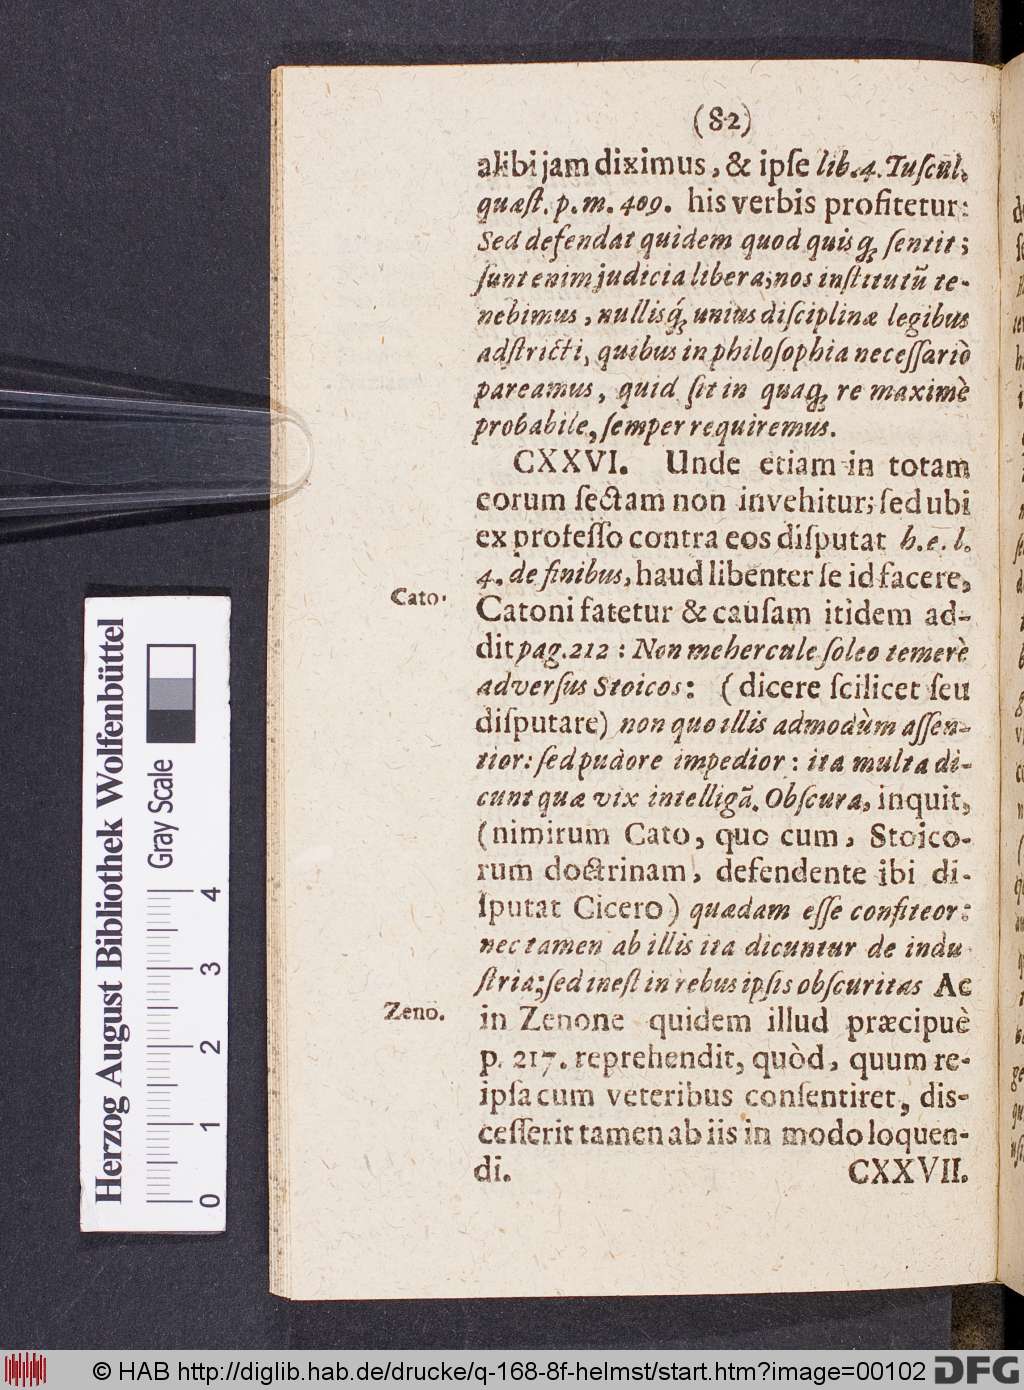 (82)
alibi jam diximus, & ipſe lib. 4. Tuſcul.
quæſt. p. m. 409. his verbis profitetur:
Sed defendat quidem quod quisq; ſentit;
ſunt enim judicia libera; nos inſtitutũ te-
nebimus, nullisq́; unius diſciplinæ legibus
adſtricti, quibus in philoſophia neceſſariò
pareamus, quid ſit in quaq; re maximè
probabile, ſemper requiremus.
CXXVI. Unde etiam in totam
eorum ſectam non invehitur; ſed ubi
ex profeſſo contra eos diſputat h. e. l.
4. de finibus, haud libenter ſe id facere,
Cato.
Catoni fatetur & cauſam itidem ad-
dit pag. 212 : Non mehercule ſoleo temerè
adverſus Stoicos: (dicere ſcilicet ſeu
diſputare) non quo illis admodùm aſſen-
tior: ſed pudore impedior: ita multa di-
cunt quæ vix intelligã. Obſcura, inquit,
(nimirum Cato, quo cum, Stoico-
rum doctrinam, defendente ibi di-
ſputat Cicero) quædam eſſe confiteor:
nec tamen ab illis ita dicuntur de indu
ſtria; ſed ineſt in rebus ipſis obſcuritas Ac
Zeno.
in Zenone quidem illud præcipuè
p. 217. reprehendit, quòd, quum re-
ipſa cum veteribus conſentiret, dis-
ceſſerit tamen ab iis in modo loquen-
di. CXXVII.
Herzog August Bibliothek Wolfenbüttel
Gray Scale
0 1 2 3 4
© HAB http://diglib.hab.de/drucke/q-168-8f-helmst/start.htm?image=00102
DFG